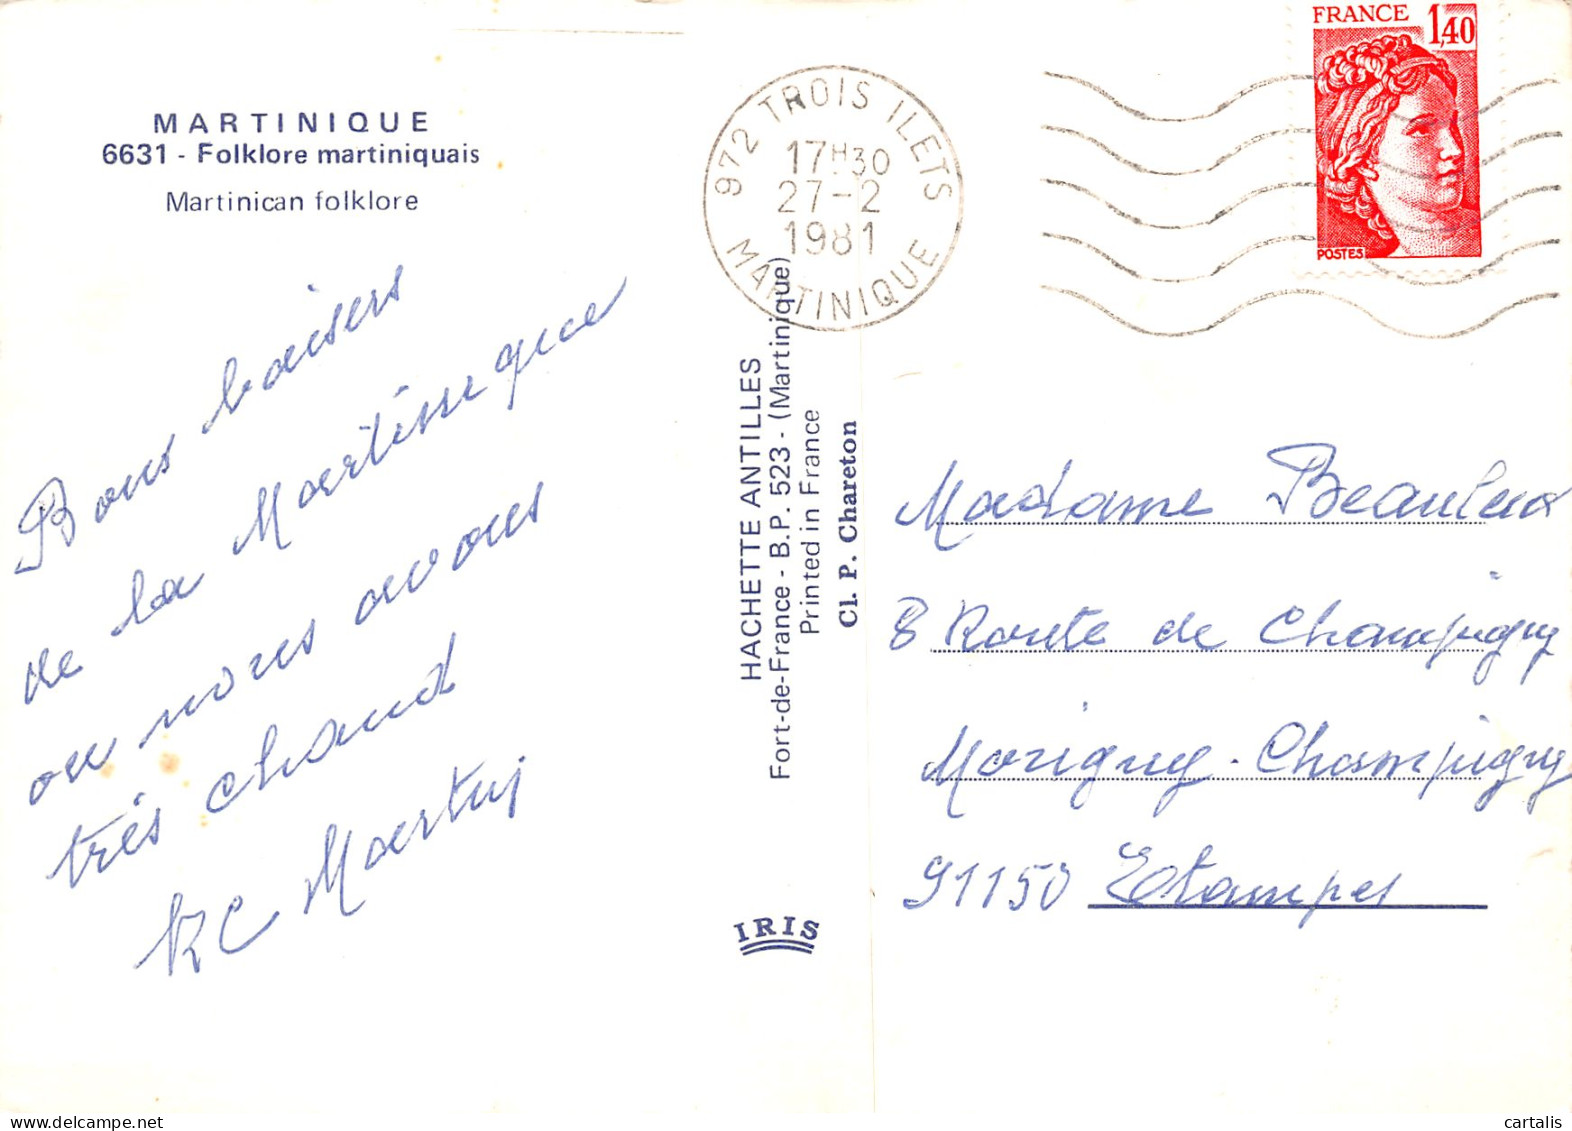 MARTINIQUE
6631 - Folklore martiniquais
Martinican folklore
Bons baisers
de la Martinique
ou nous avons
très chaud
RC Martin
HACHETTE ANTILLES
Fort-de-France - B.P. 523 - (Martinique)
Printed in France
Cl. P. Chareton
IRIS
972 TROIS ILETS
17H30
27-2
1981
MARTINIQUE
FRANCE
1,40
POSTES
Madame
8 Route de Champigny
Morigny-Champigny
91150 Etampes
cartalis